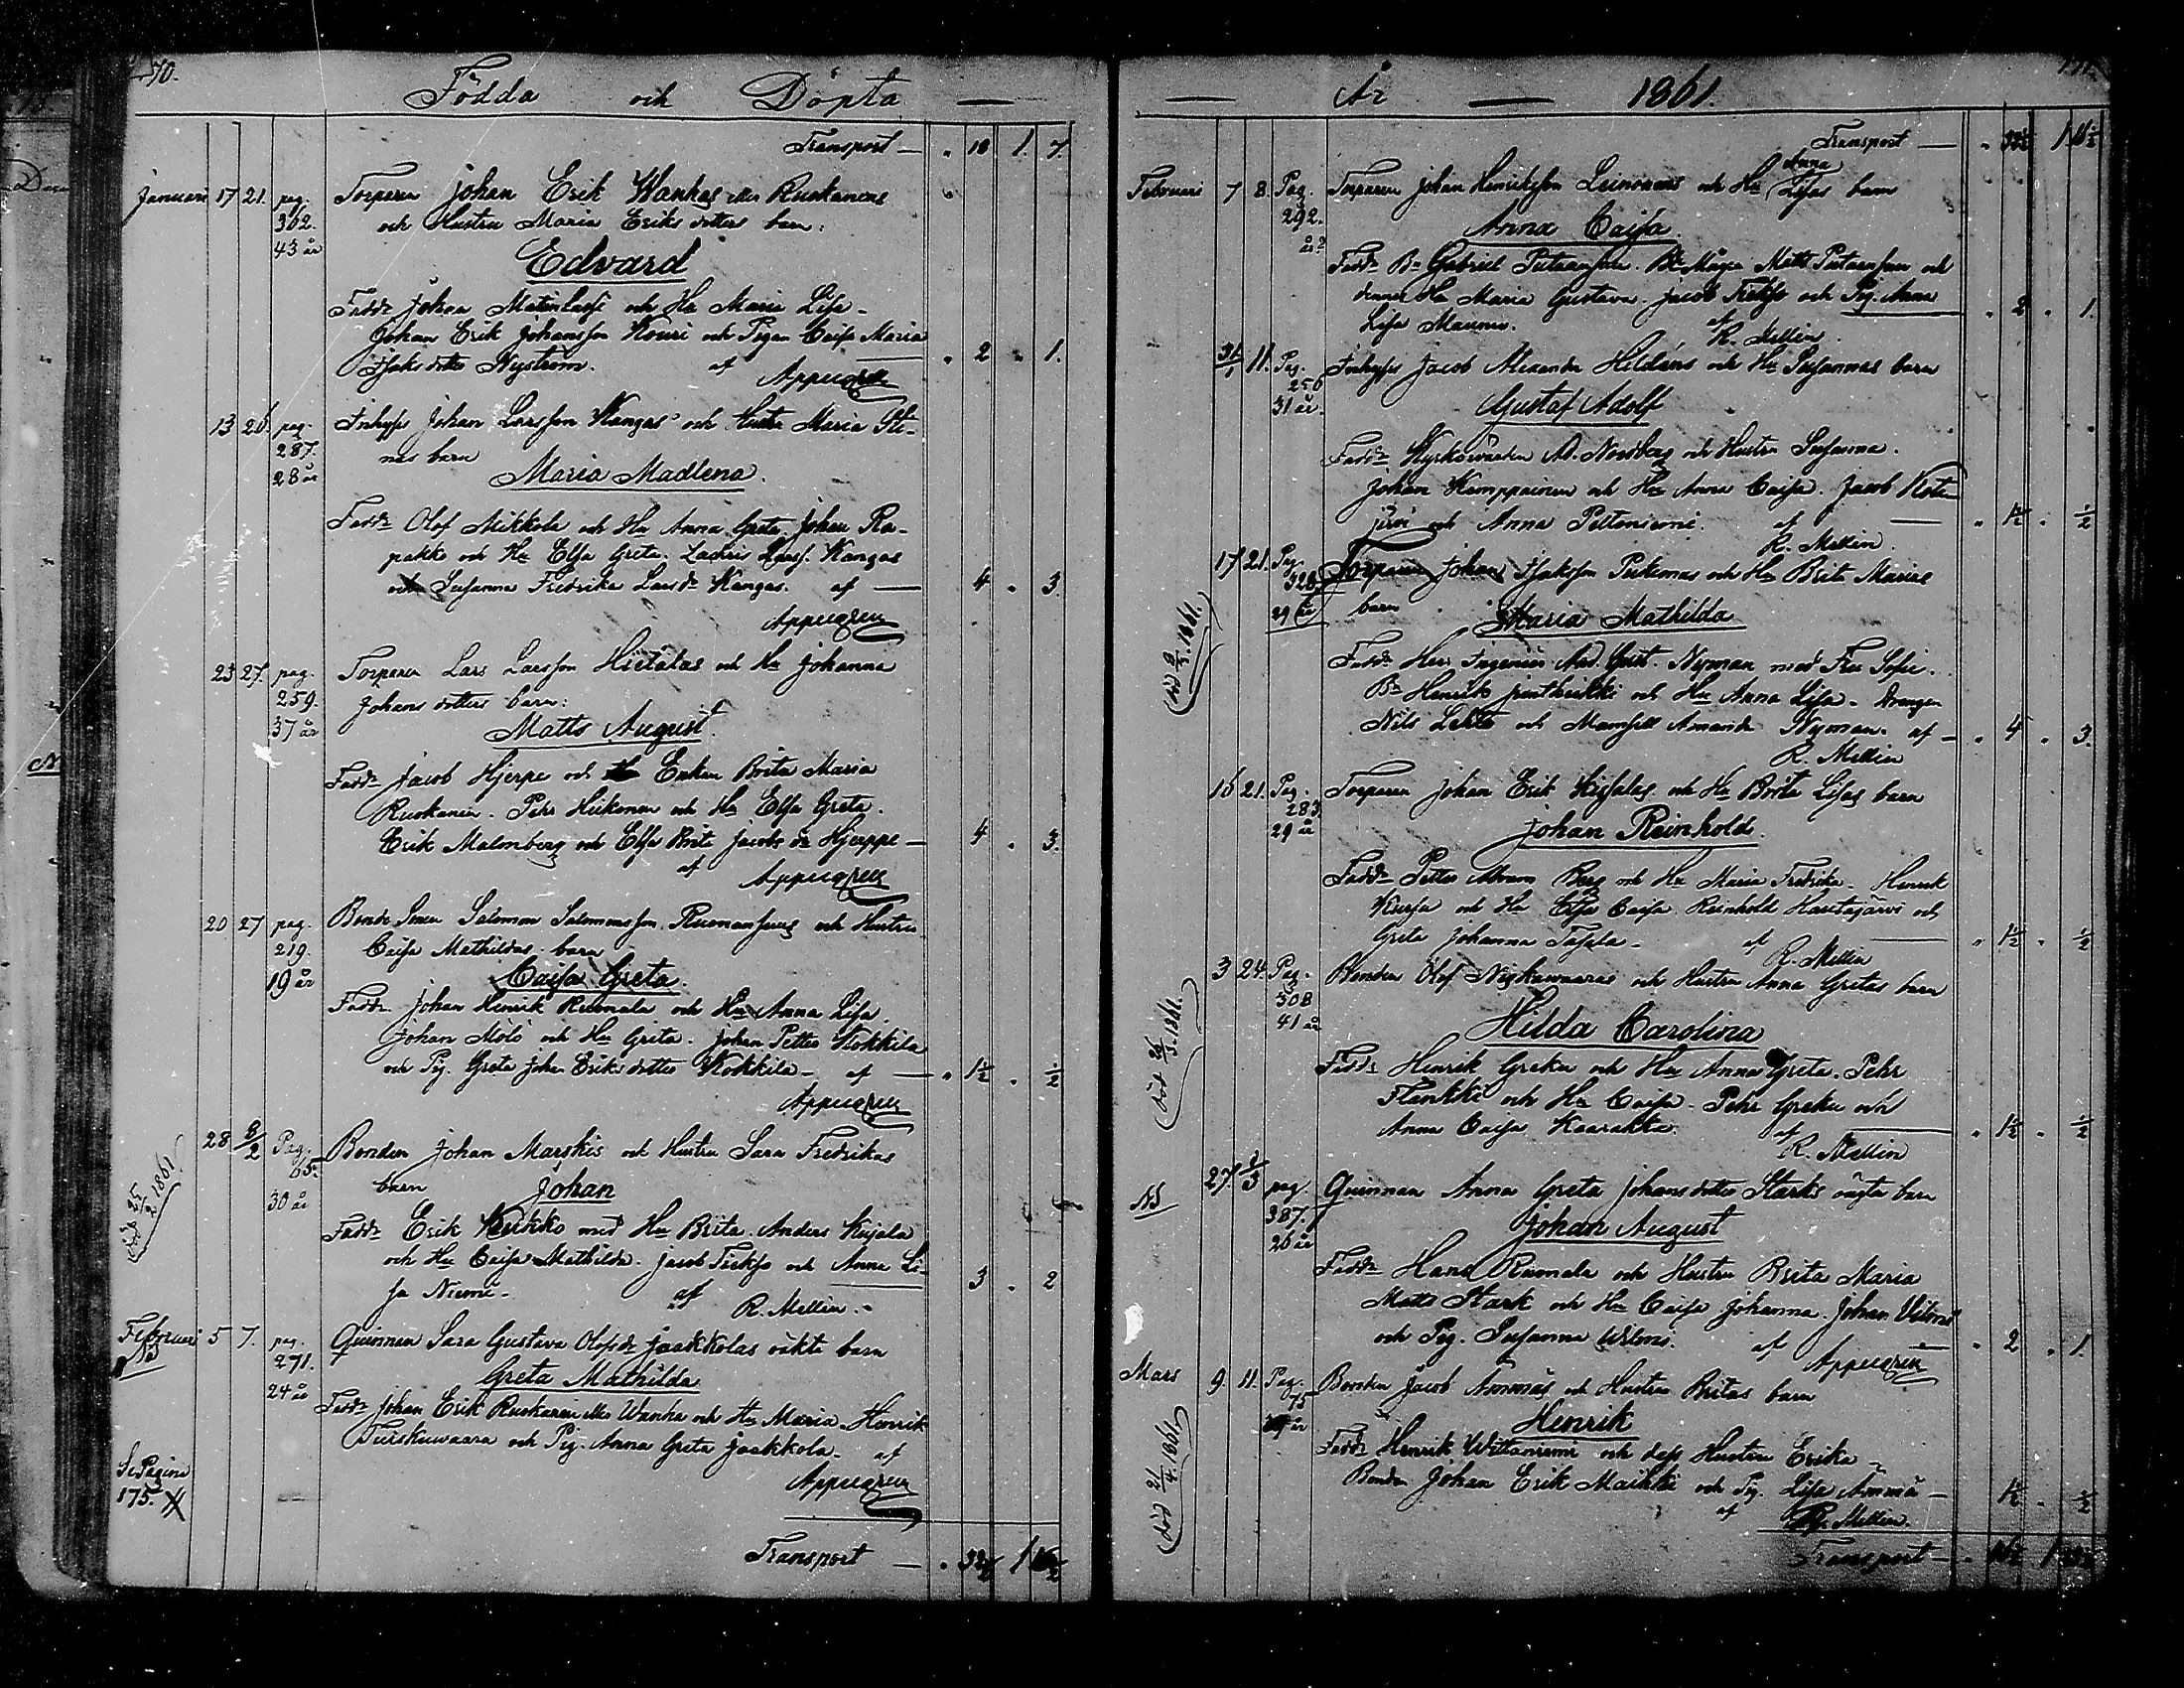 70.
Födda och Döpta —
Transport — " 18 1. 7.
Januari 17 21. pag. 302. 43 år
Torparen Johan Erik Wankas eller Ruokanens
och Hustru Maria Eriks dotters barn:
Edvard
Fadd: Johan och Hu Maria Lisa -
Johan Erik Johansson Kouri och Pigan Caisa Maria
dotter Nyström. af " 2 " 1.
Appelgren
13 26. pag. 287. 28 år
Inhyses Johan Larsson Kangas och Hustru Maria Sti-
nas barn
Maria Madlena.
Fadd: Olof Mikkola och Hu Anna Greta, Johan Ra-
pakko och Hu Elsa Greta. Kangas
och Susanna Fredrika Larsdr Kangas. af — 4 " 3.
Appelgren
23 27. pag. 259. 37 år
Torparen Lars Larsson Hietalas och Hu Johanna
Johans dotters barn:
Matts August.
Fadd: Jacob Hjerpe och Enkan Brita Maria
Ruokanen. Pehr Heikonen och Hu Elsa Greta.
Erik Malmberg och Elsa Brita Jacobs dr Hjerppe — 4 " 3.
af Appelgren
20 27 pag. 219. 19 år
Bonde Sonen Salomon Salomonsson och Hustru
Caisa Mathildas barn
Caisa Greta.
Fadd: Johan Henrik Ruonala och Hu Anna Lisa.
Johan Mölö och Hu Greta. Johan Petter Kokkila
och Pig. Greta Johan Eriks dotter Kokkila - af — " 1½ " ½
Appelgren
28 8/2 Pag. 65. 30 år
Bonden Johan Marskis och Hustru Sara Fredrikas
barn Johan
död 25/2 1861
Fadd: Erik med Hu Brita. Anders Kujala
och Hu Caisa Mathilda. Jacob och Anna Li-
sa Niemi - af 3 " 2
R. Mellin.
Februari 5 7. pag. 271. 24 år
Quinnan Sara Gustava Olofsdr Jaakkolas oäkta barn
Greta Mathilda
Fadd: Johan Erik Ruokanen eller Wanha och Hu Maria. Henrik
Turskuwaara och Pig. Anna Greta Jaakkola - af
Appelgren
Se Pagina
175.
Transport —
— År — 1861.
Transport —
Februari 7 8. Pag. 292.
Torparen Johan Henriksson Leinonens och Hu Anna Lisas barn
Anna Caisa.
Fadd: Bn Gabriel Matts och
dennes Hu Maria Gustava. Jacob och Pig. Anna
Lisa Maunu. af " 2 " 1.
R. Mellin.
31/1 11. Pag. 256 31 år.
Inhyses Jacob Alexander Hildéns och Hu Susannas barn
Gustaf Adolf
Fadd: Kyrkovärden Ad. Nordberg och Hustru Susanna.
Johan Kamppainen och Hu Anna Caisa. Jacob
järvi och Anna Peltoniemi. af — " 1½ " ½
R. Mellin.
17 21. Pag. 328. 29 år
Torparen Johan och Hu Brita Marias
barn
Maria Mathilda
Fadd: Herr Ingeniör And. Gust. Nyman med Fru Sofie.
Bn Henrik och Hu Anna Lisa - Drengen
Nils Lehto och Mamsell Amanda Nyman. af — " 4 " 3.
R. Mellin
16 21. Pag. 283. 29 år
Torparen Johan Erik och Hu Brita Lisas barn
Johan Reinhold.
Fadd: Petter Abram Berg och Hu Maria Fredrika. Henrik
och Hu Elsa Caisa. Reinhold Hautajärvi och
Greta Johanna - af — " 1½ " ½
R. Mellin
3 24. Pag. 308 41 år
Bonden Olof Niskawaaras och Hustru Anna Gretas barn
Hilda Carolina
Fadd: Henrik Greku och Hu Anna Greta. Pehr
Flinkki och Hu Caisa. Pehr Greku och
Anna Caisa af — " 1½ " ½
R. Mellin
27 1/3 pag. 387. 26 år
Quinnan Anna Greta Johans dotter Starks oägta barn
Johan August
Fadd: Hans Ruonala och Hustru Brita Maria
Matts Stark och Hu Caisa Johanna. Johan
och Pig. Susanna af — " 2 " 1.
Appelgren
Mars 9. 11. Pag. 75
Bonden Jacob Ämmäs och Hustru Britas barn
Henrik
död 21/4. 1861
Fadd: Henrik Wittaniemi och dess Hustru Erika -
Bonden Johan Erik Maikki och Pig. Lisa Ämmä — 1½ " ½
af R. Mellin.
Transport —